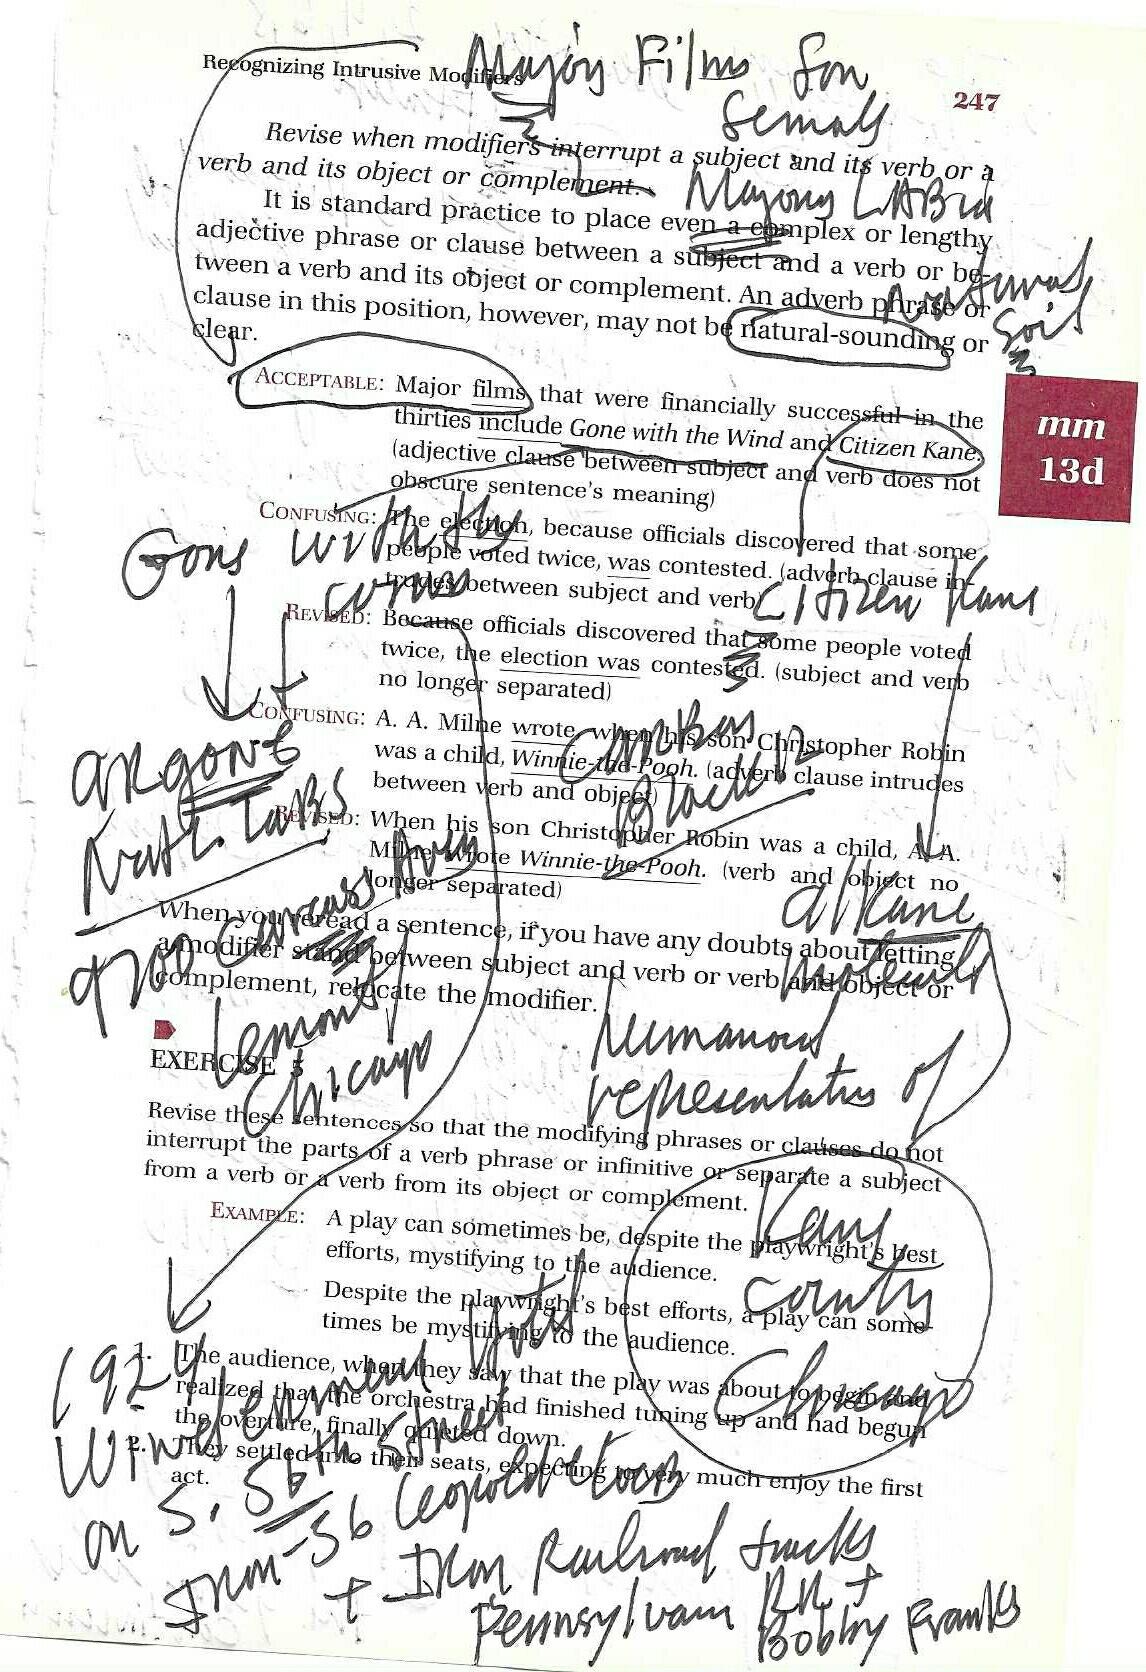 Recognizing Intrusive Modifiers
Major Films for
247
Females
Revise when modifiers interrupt a subject and its verb or a
verb and its object or complement.
LABia
It is standard practice to place even a complex or lengthy
adjective phrase or clause between a subject and a verb or be-
tween a verb and its object or complement. An adverb phrase or
natural
clause in this position, however, may not be natural-sounding or
Soil
clear.
ACCEPTABLE: Major films that were financially successful in the
thirties include Gone with the Wind and Citizen Kane.
(adjective clause between subject and verb does not
obscure sentence's meaning)
mm
13d
CONFUSING: The election, because officials discovered that some
people voted twice, was contested. (adverb clause in-
trudes between subject and verb)
Gone with the
Citizen Kane
REVISED: Because officials discovered that some people voted
twice, the election was contested. (subject and verb
no longer separated)
CONFUSING: A. A. Milne wrote, when his son Christopher Robin
was a child, Winnie-the-Pooh. (adverb clause intrudes
between verb and object)
Carbon
Black
ARgonE
Nat'l. LaBs
REVISED: When his son Christopher Robin was a child, A. A.
Milne wrote Winnie-the-Pooh. (verb and object no
longer separated)
alkane
molecule
9700 Cass Ave
Lemont
Chicago
When you reread a sentence, if you have any doubts about letting
a modifier stand between subject and verb or verb and object or
complement, relocate the modifier.
representative of
EXERCISE 5
Revise these sentences so that the modifying phrases or clauses do not
interrupt the parts of a verb phrase or infinitive or separate a subject
from a verb or a verb from its object or complement.
Kane
County
Chicago
EXAMPLE: A play can sometimes be, despite the playwright's best
efforts, mystifying to the audience.
Despite the playwright's best efforts, a play can some-
times be mystifying to the audience.
1. The audience, when they saw that the play was about to begin and
realized that the orchestra had finished tuning up and had begun
the overture, finally quieted down.
2. They settled into their seats, expecting to very much enjoy the first
act.
1924
Windermere Hotel
on S. 56th Street
Iron-56 Leopold + Loeb
+ Iron Railroad tracks
Pennsylvania RR. +
Bobby Franks